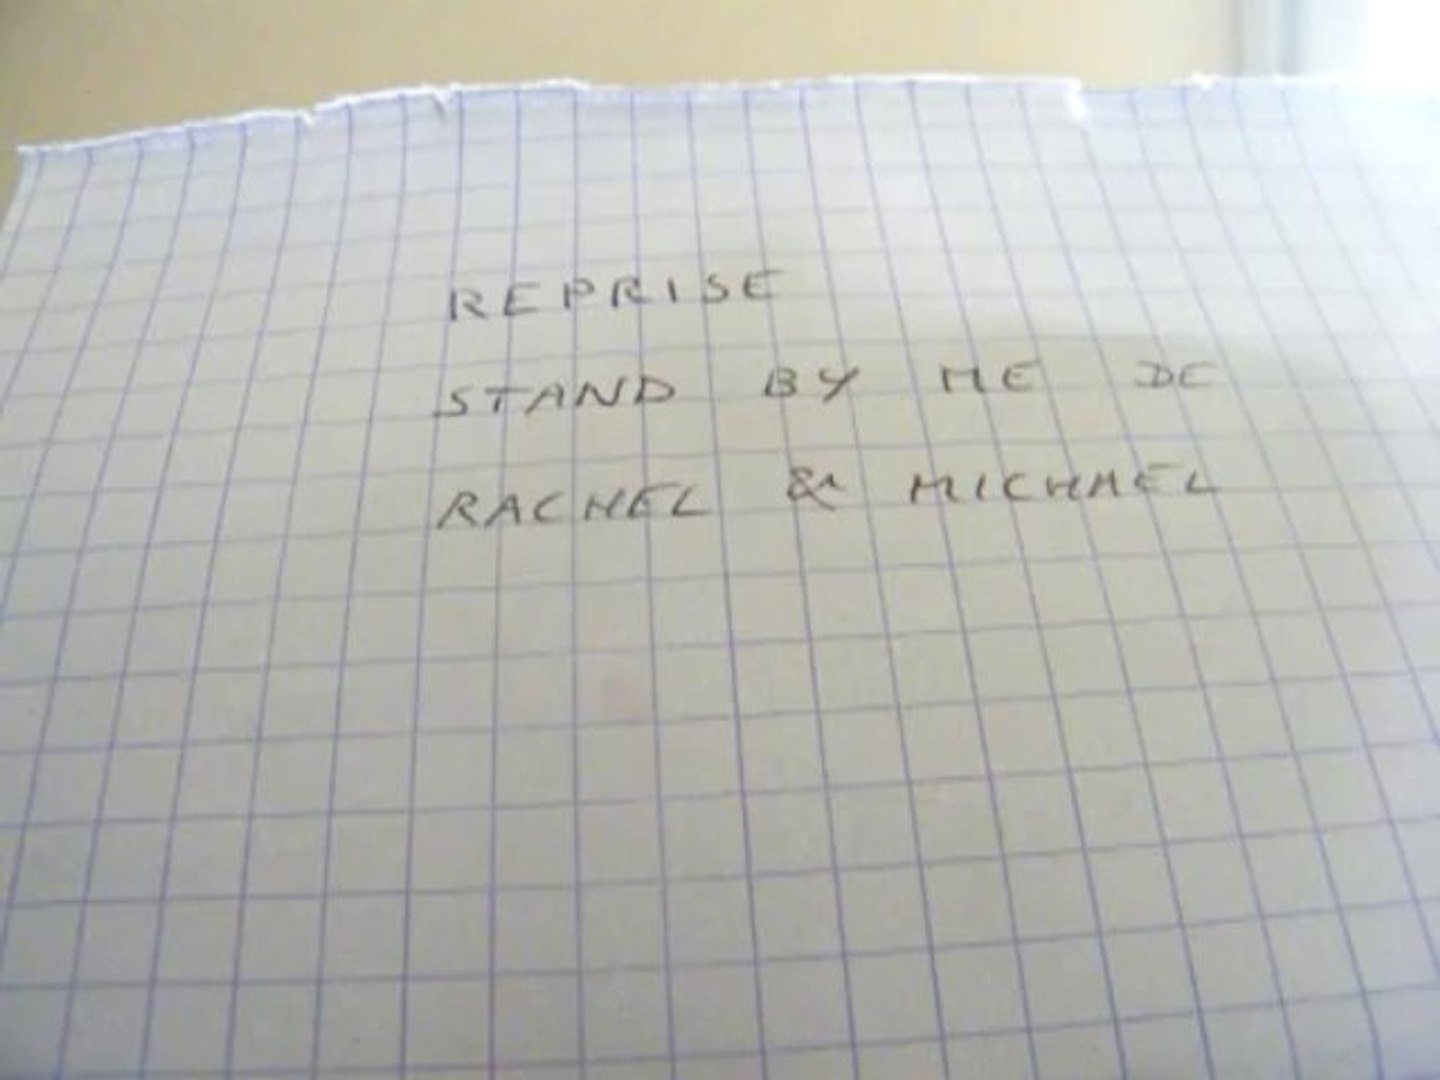 REPRISE
STAND BY ME DE
RACHEL & MICHAEL